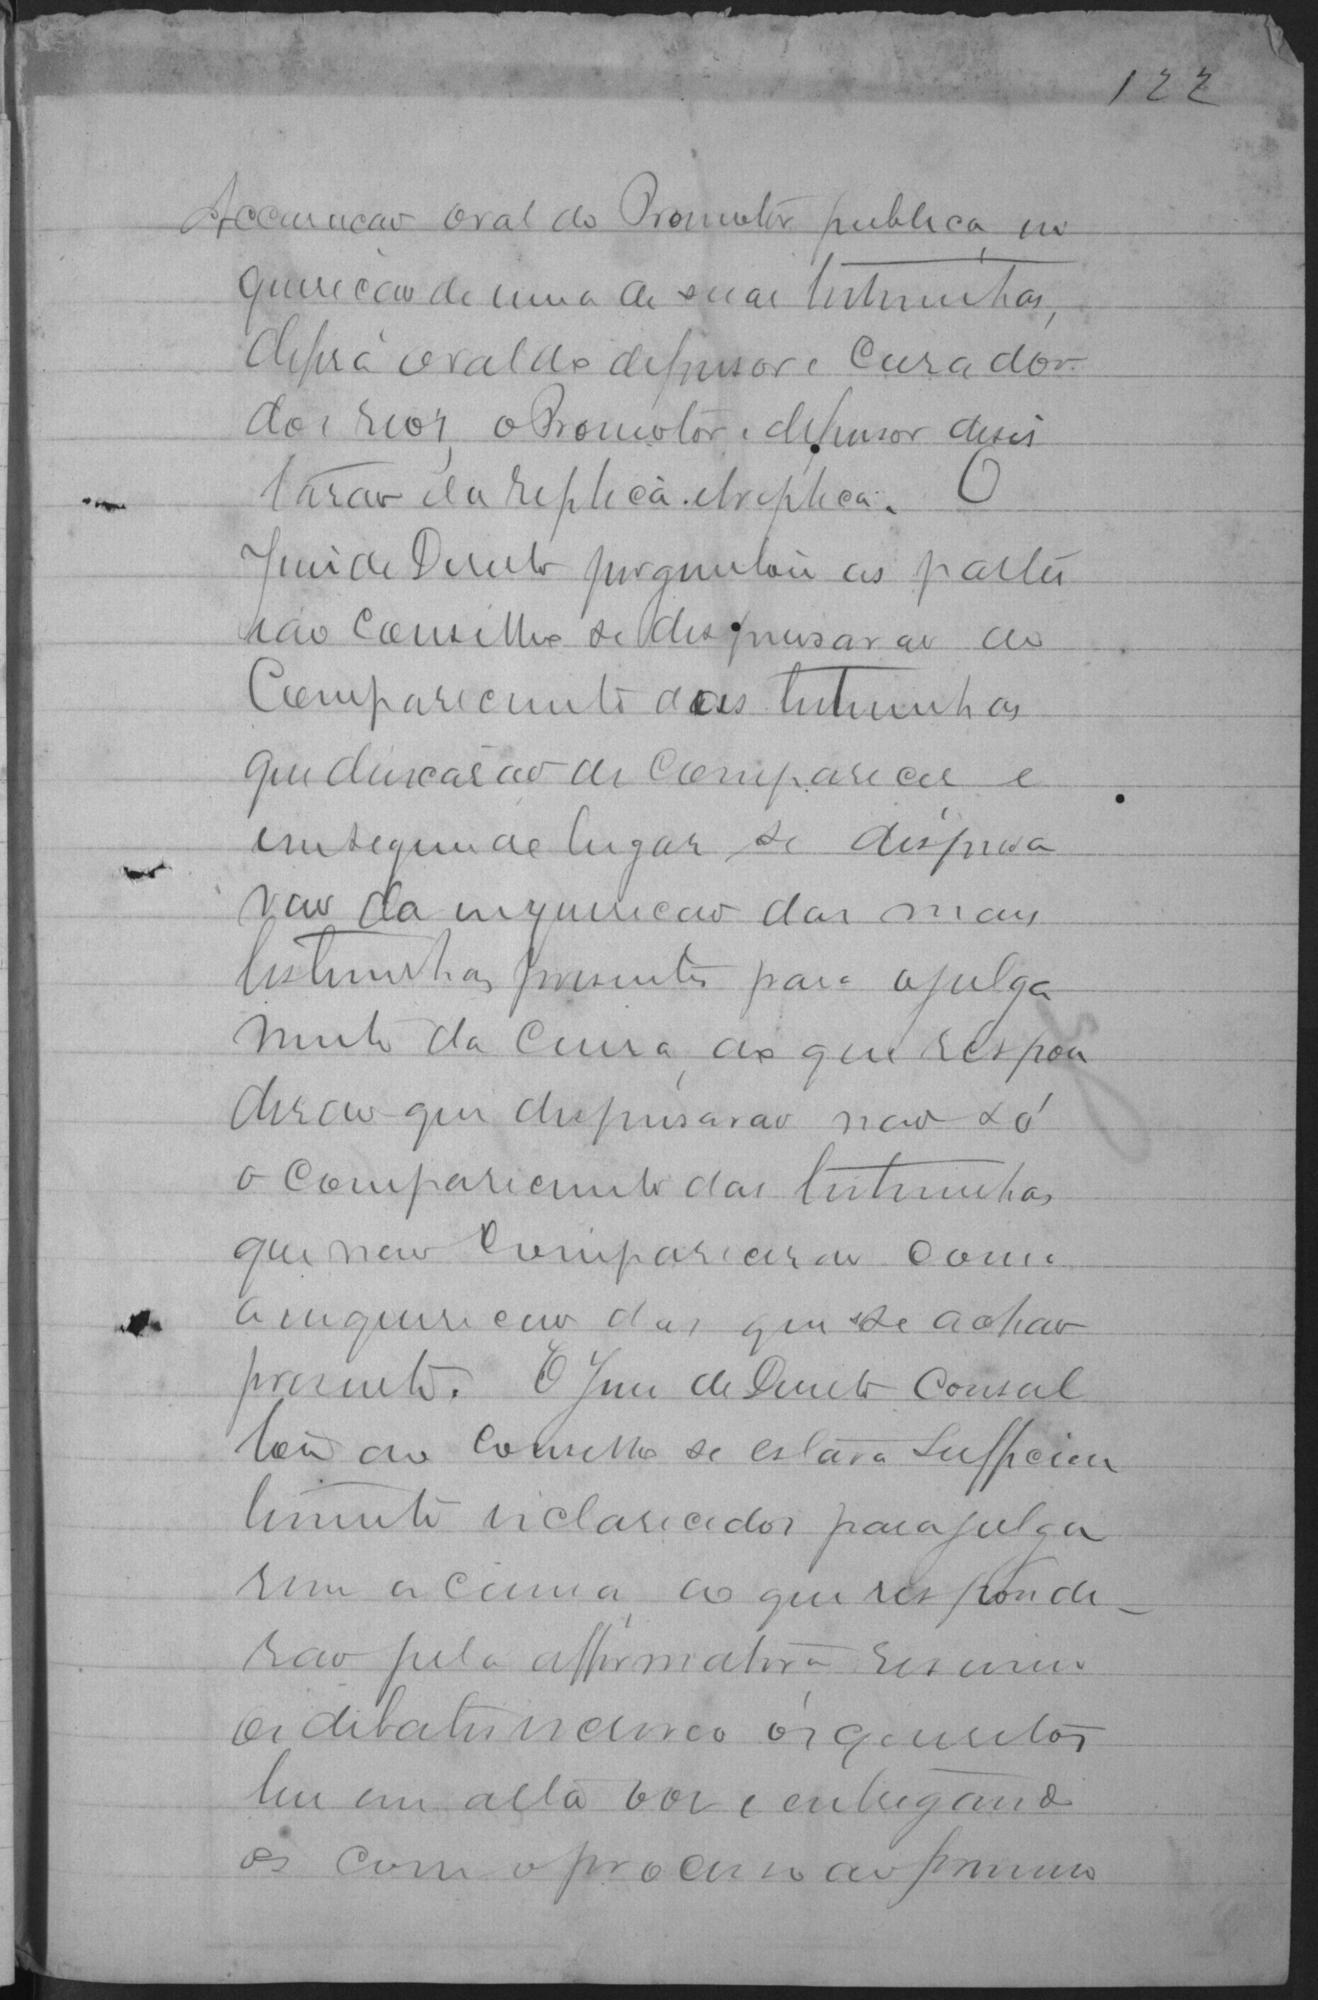 122
Accusação oral do Promotor publica, in
quirição de uma de suas testimunhas,
defesa oral do defensor e Curador
dos reos, o Promotor e defensor desis
tirão da replica e treplica. O
Juis de Dereito perguntou as partes
e ao Conselho se despensavao ao
Comparecimento das testimunhas
que deixarão de Comparecer e
em segundo lugar se dispensa
vao da inquirição das mais
testimunhas presentes para o julga
mento da Causa, ao que respon
derão que despensavao nao só
o Comparecimento das testimunhas
que nao Comparecerao como
a inquirição das que se achao
presente. O Juis de Dereito Consul
tou ao Conselho se estava Sufficien
timente esclarecidos para julga
rem a causa, ao que responde-
rao pela affirmativa, resumio
os debates escreveo os quesitos
leu em alta voz e entregando
os com o processo ao primeiro